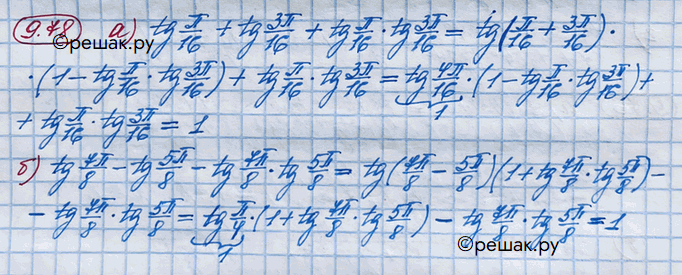 9.78 а) tg π/16 + tg 3π/16 + tg π/16 · tg 3π/16 = tg(π/16 + 3π/16) ·
©решак.ру
· (1 - tg π/16 · tg 3π/16) + tg π/16 · tg 3π/16 = tg 4π/16 · (1 - tg π/16 · tg 3π/16) +
1
+ tg π/16 · tg 3π/16 = 1
б) tg 7π/8 - tg 5π/8 - tg 7π/8 · tg 5π/8 = tg(7π/8 - 5π/8)(1 + tg 7π/8 · tg 5π/8) -
- tg 7π/8 · tg 5π/8 = tg π/4 · (1 + tg 7π/8 · tg 5π/8) - tg 7π/8 · tg 5π/8 = 1
1
©решак.ру